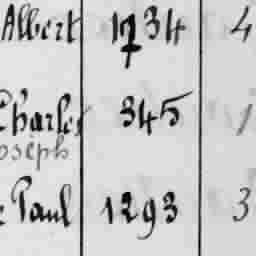 Albert 1734 4
Charles 345 1
Joseph
Paul 1293 3